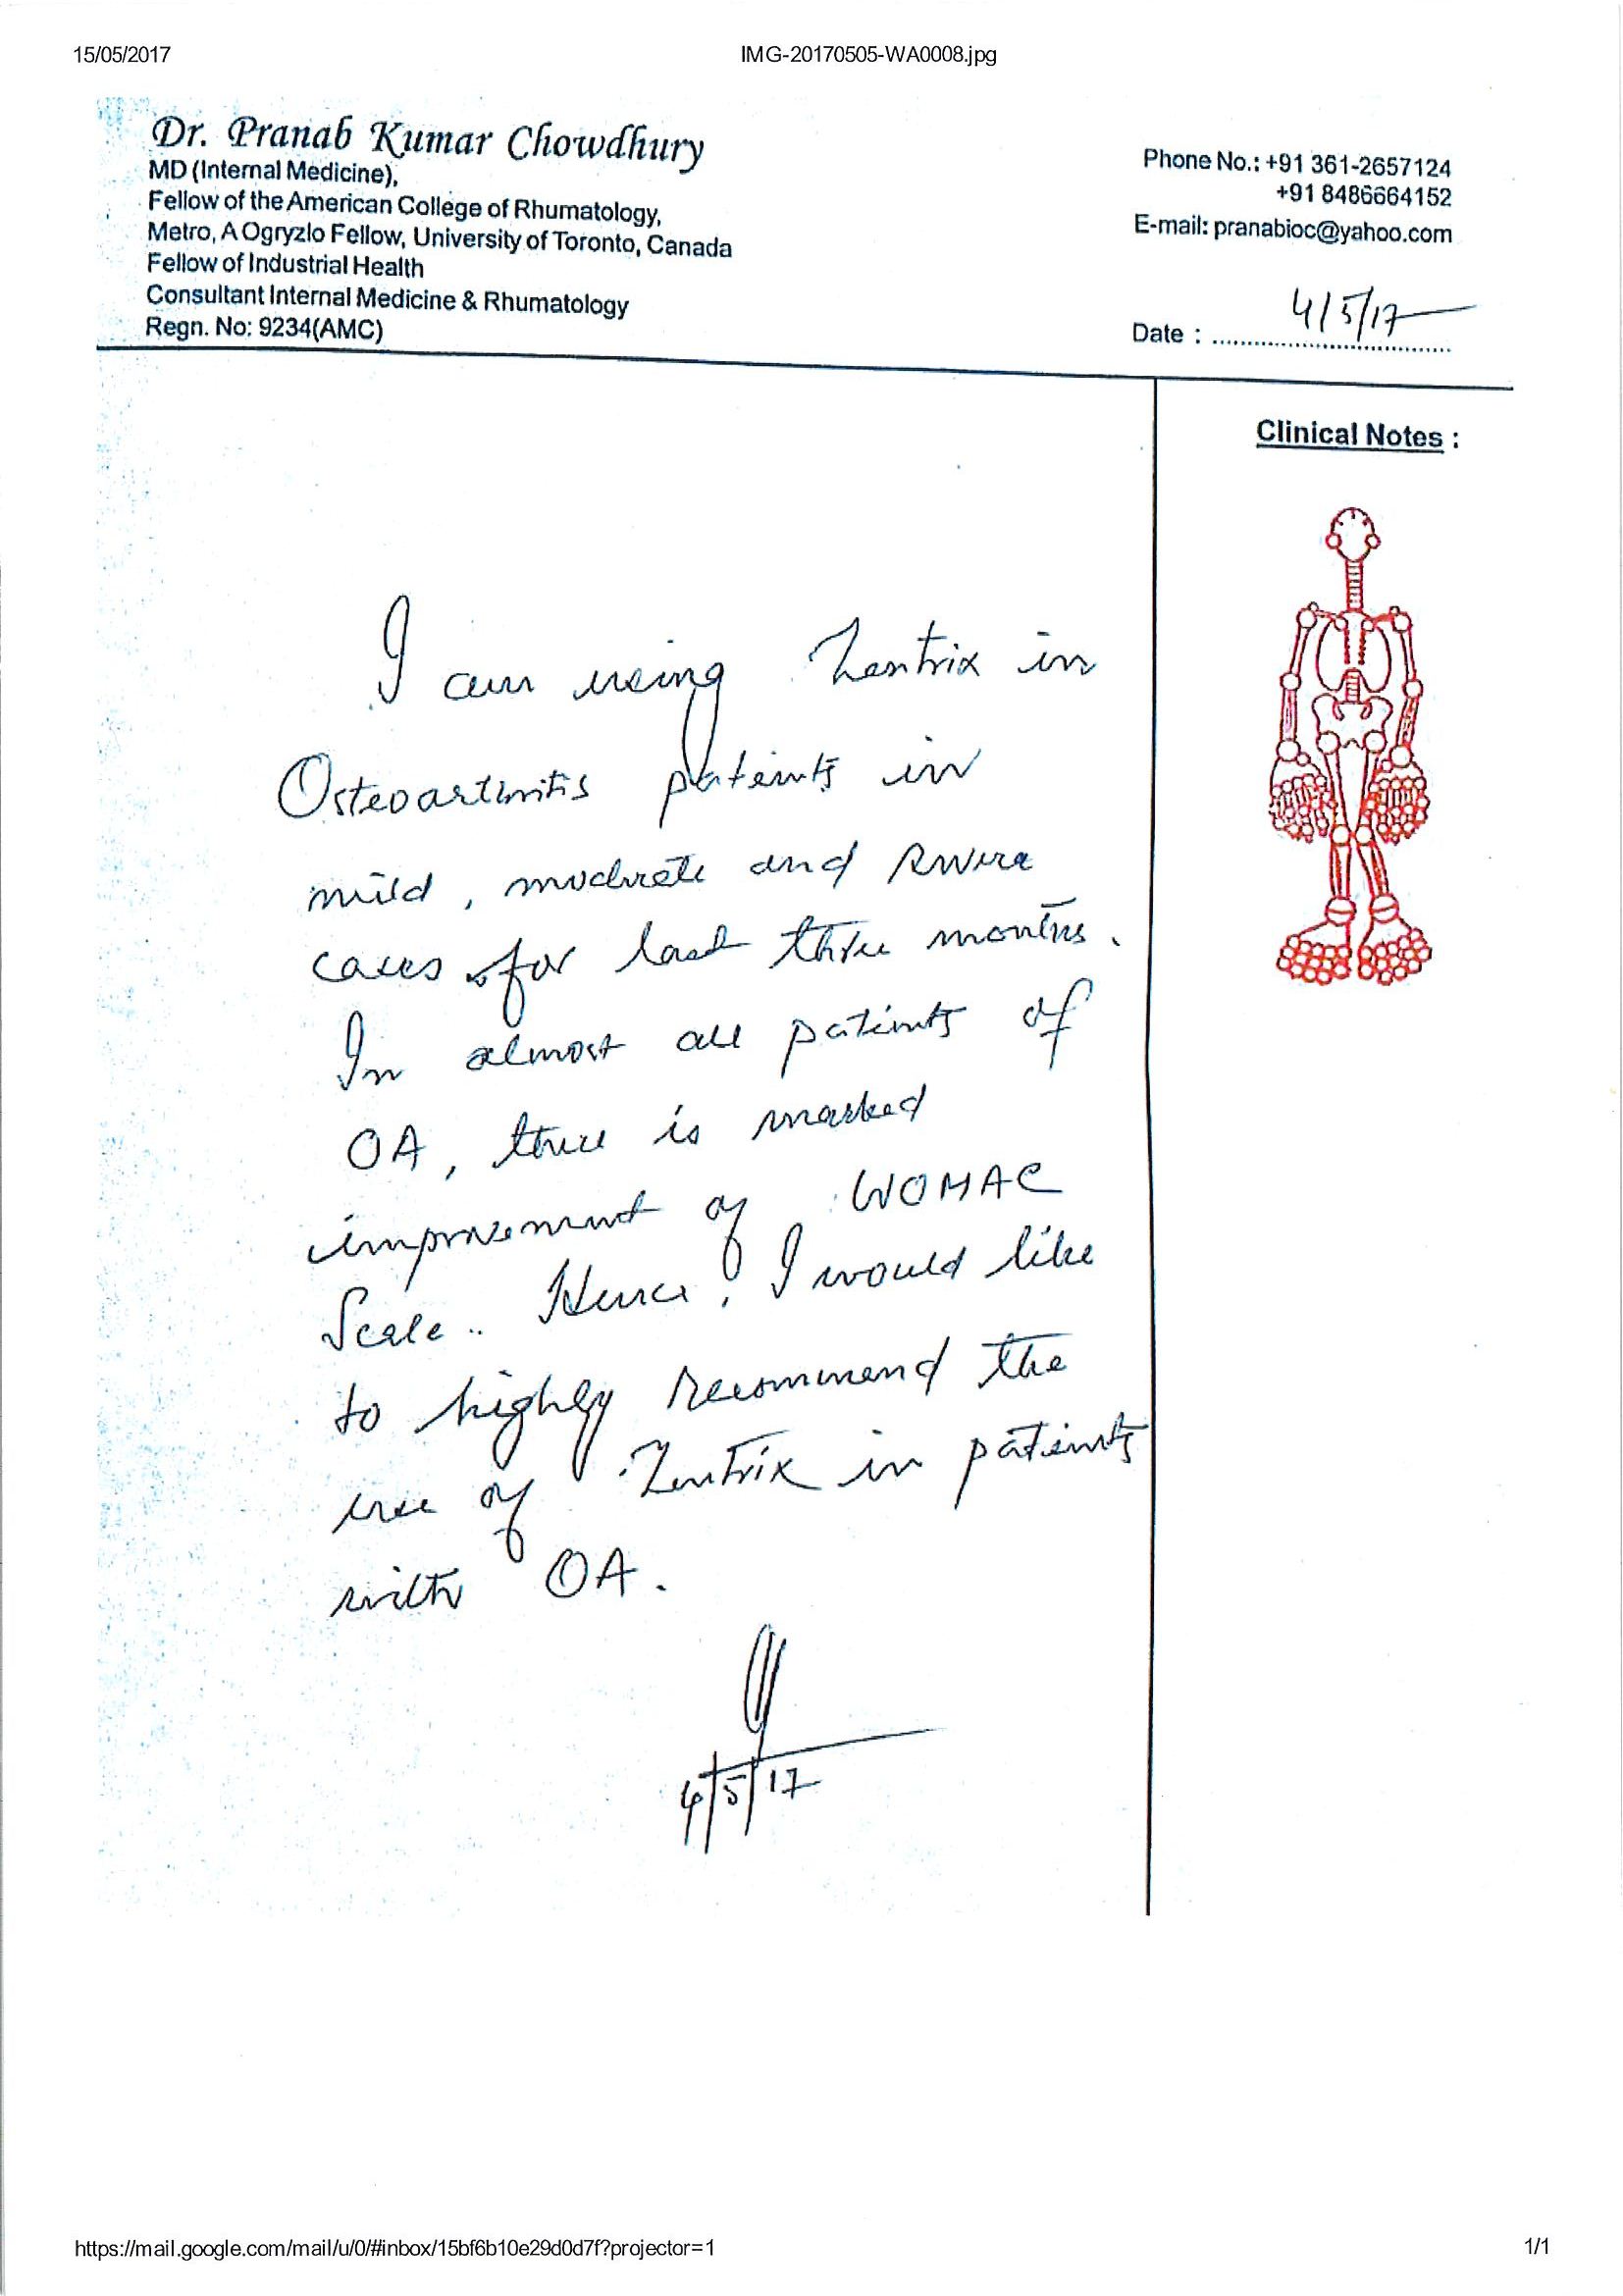 15/05/2017 IMG-20170505-WA0008.jpg
Dr. Pranab Kumar Chowdhury
MD (Internal Medicine),
Fellow of the American College of Rhumatology,
Metro, A Ogryzlo Fellow, University of Toronto, Canada
Fellow of Industrial Health
Consultant Internal Medicine & Rhumatology
Regn. No: 9234(AMC)
Phone No.: +91 361-2657124
+91 8486664152
E-mail: pranabioc@yahoo.com
Date : 4/5/17
Clinical Notes :
I am using Zentrix in
Osteoarthritis patients in
mild, moderate and severe
cases for last three months.
In almost all patients of
OA, there is marked
improvement of WOMAC
Scale.. Hence, I would like
to highly recommend the
use of Zentrix in patients
with OA.
4/5/17
https://mail.google.com/mail/u/0/#inbox/15bf6b10e29d0d7f?projector=1 1/1